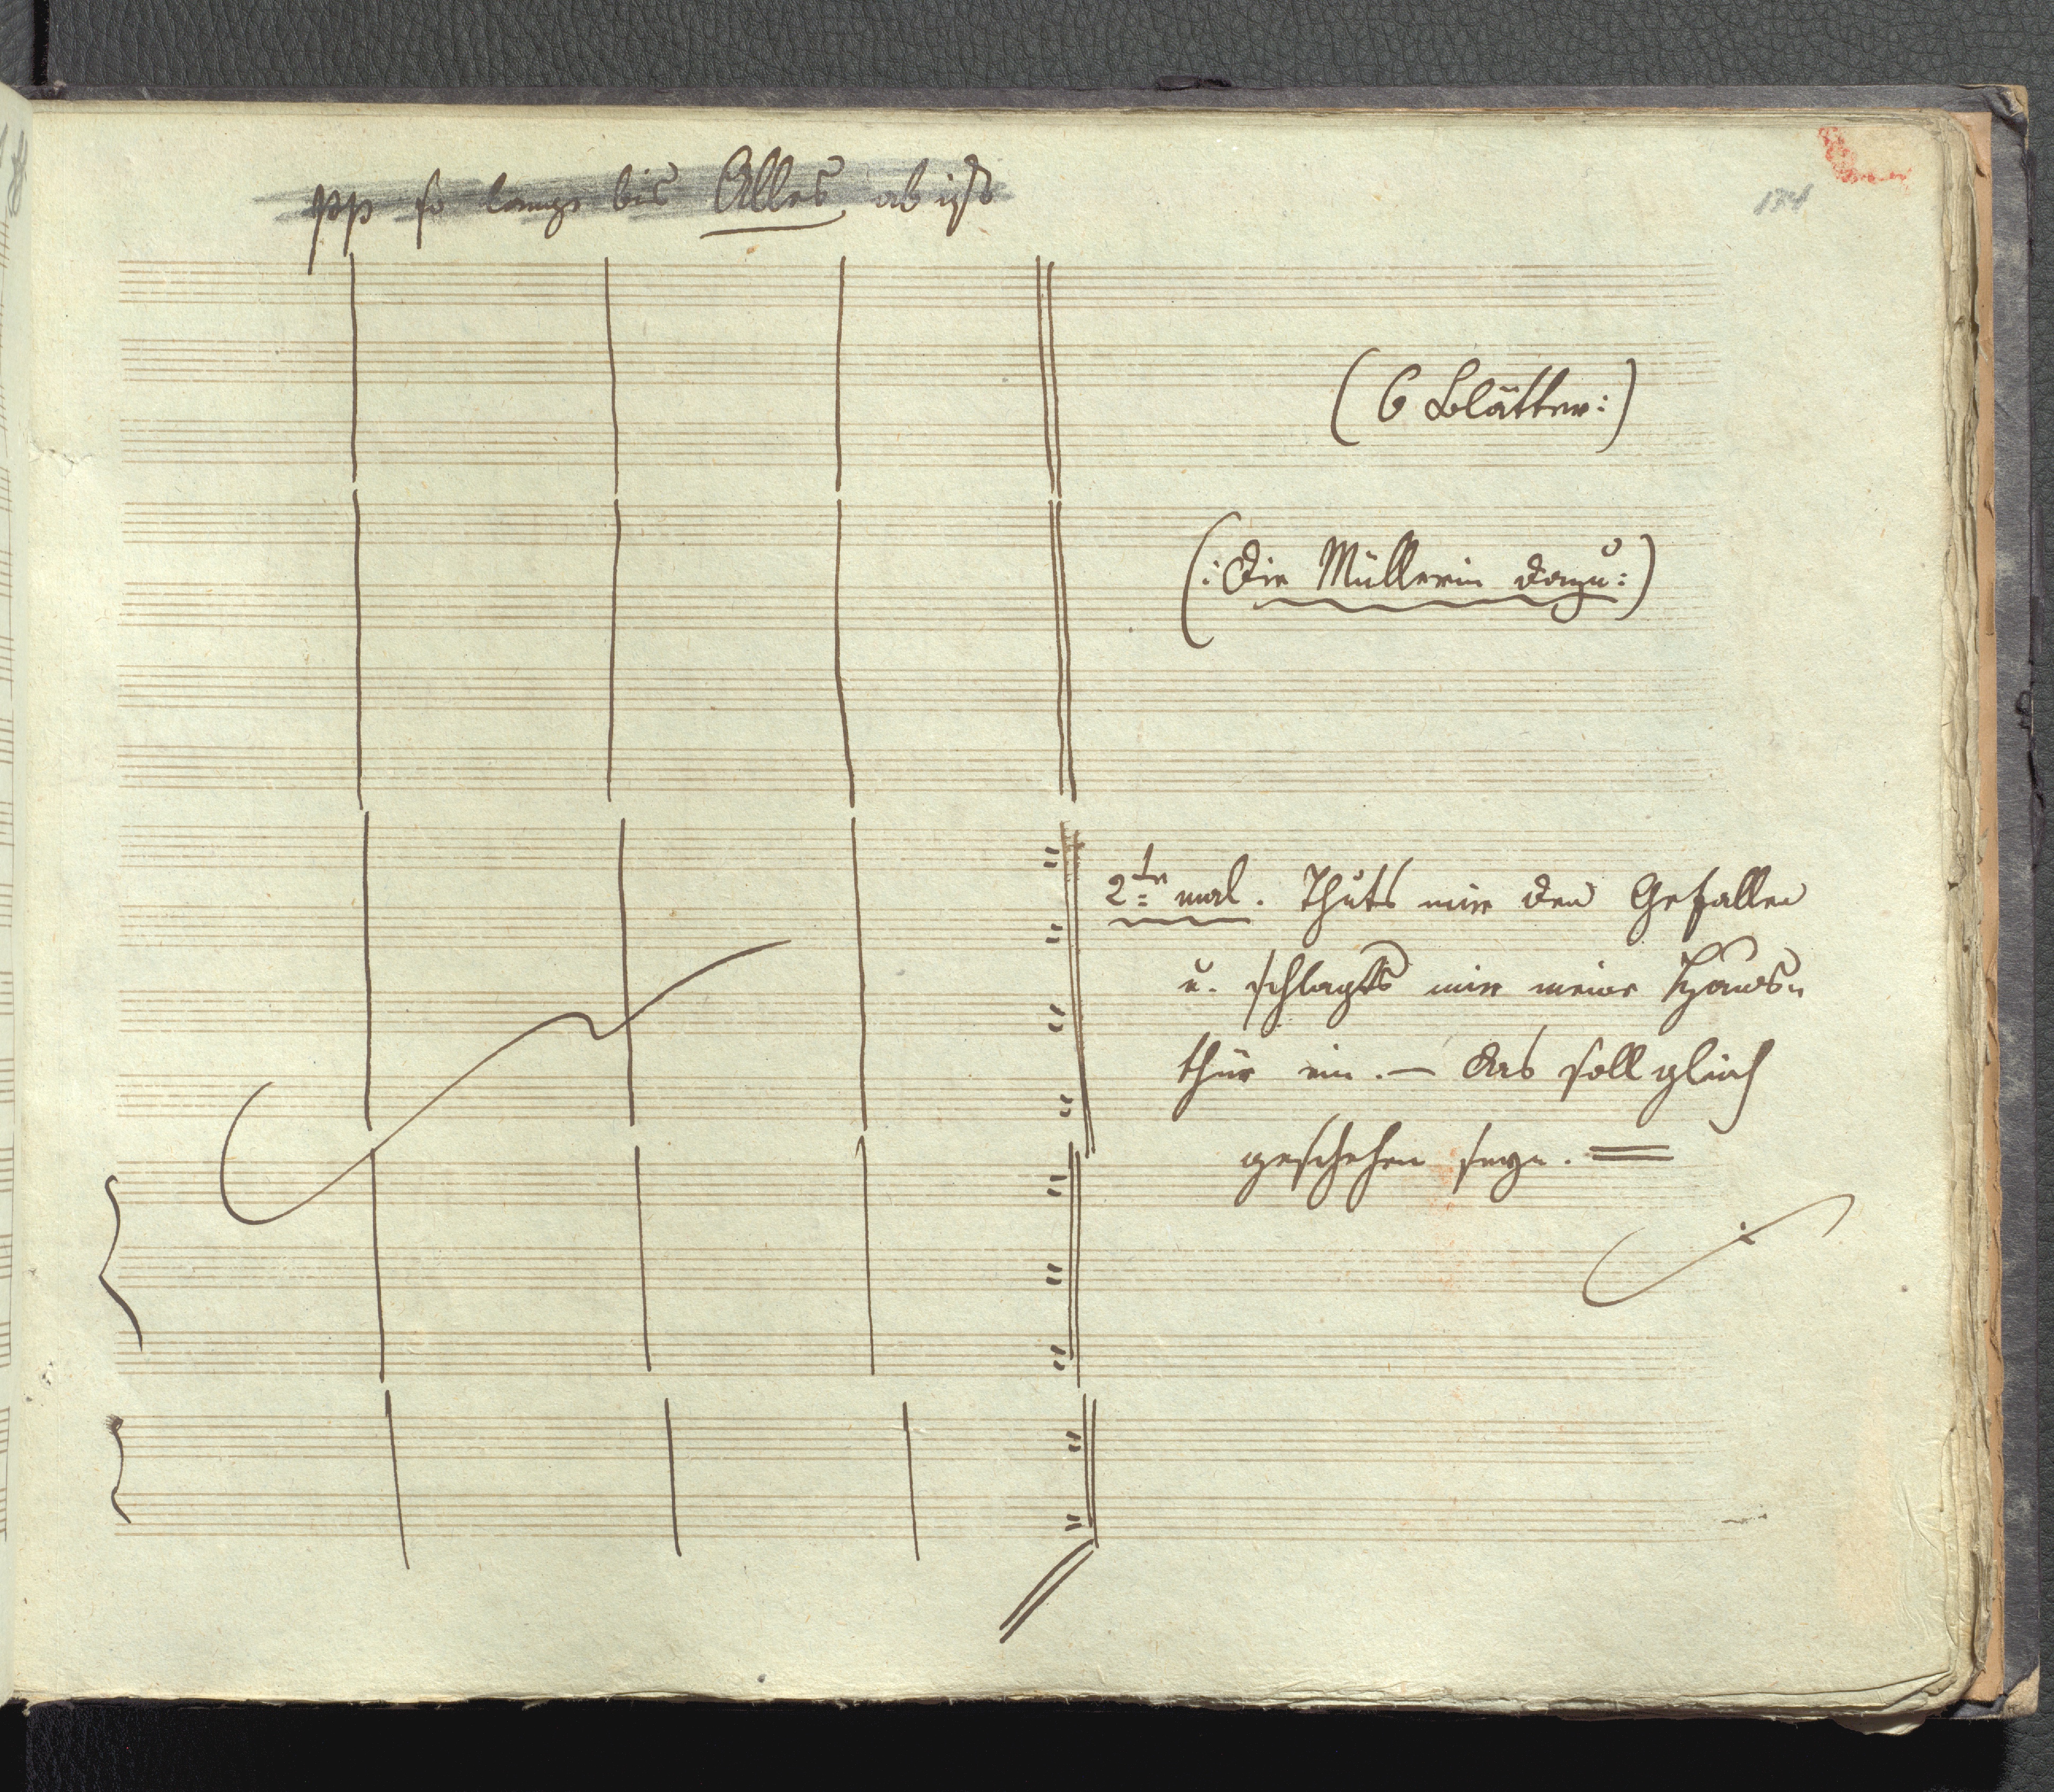 pp so lange bis Alles ab ist
174
(6 Blätter:)
(: Die Müllerin dazu :)
2te mal. Thuts mir den Gefallen
u. schlagts mir meine Haus-
thür ein. — Das soll gleich
geschehen seyn. =